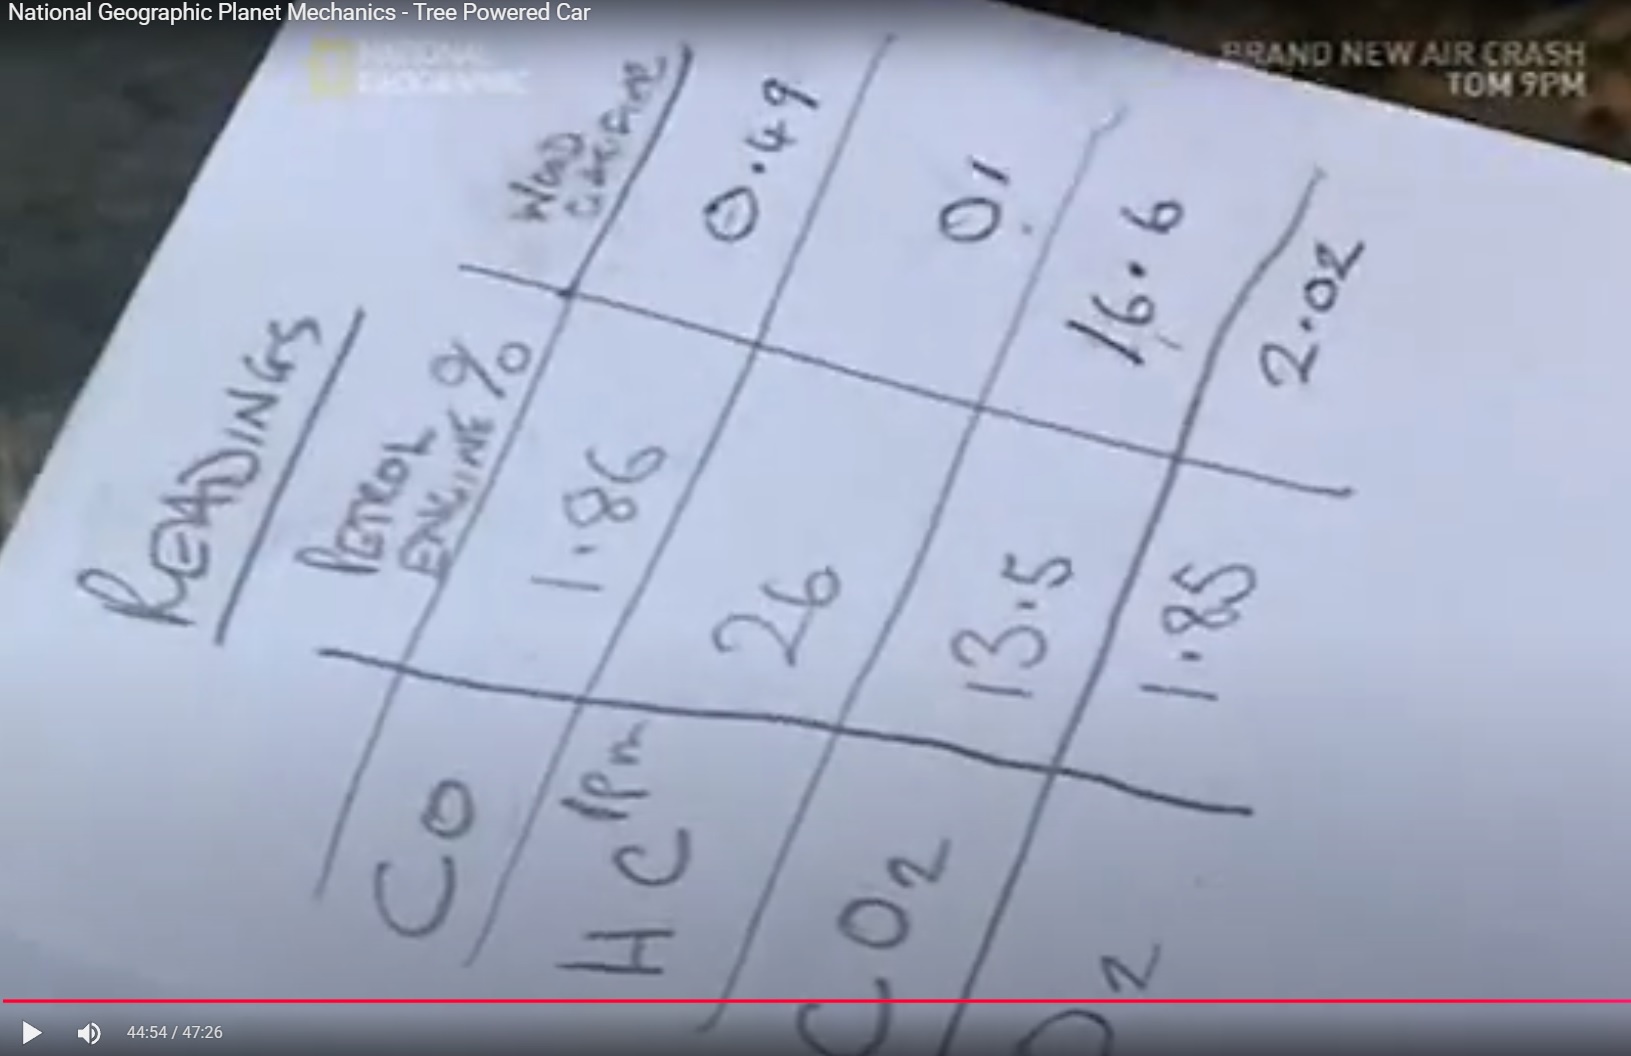 National Geographic Planet Mechanics - Tree Powered Car
NATIONAL
GEOGRAPHIC
BRAND NEW AIR CRASH
TOM 9PM
READINGS
PETROL
ENGINE %
WOOD
GASIFIER
CO 1.86 0.49
HC PPm 26 01
CO2 13.5 16.6
O2 1.85 2.02
44:54 / 47:26